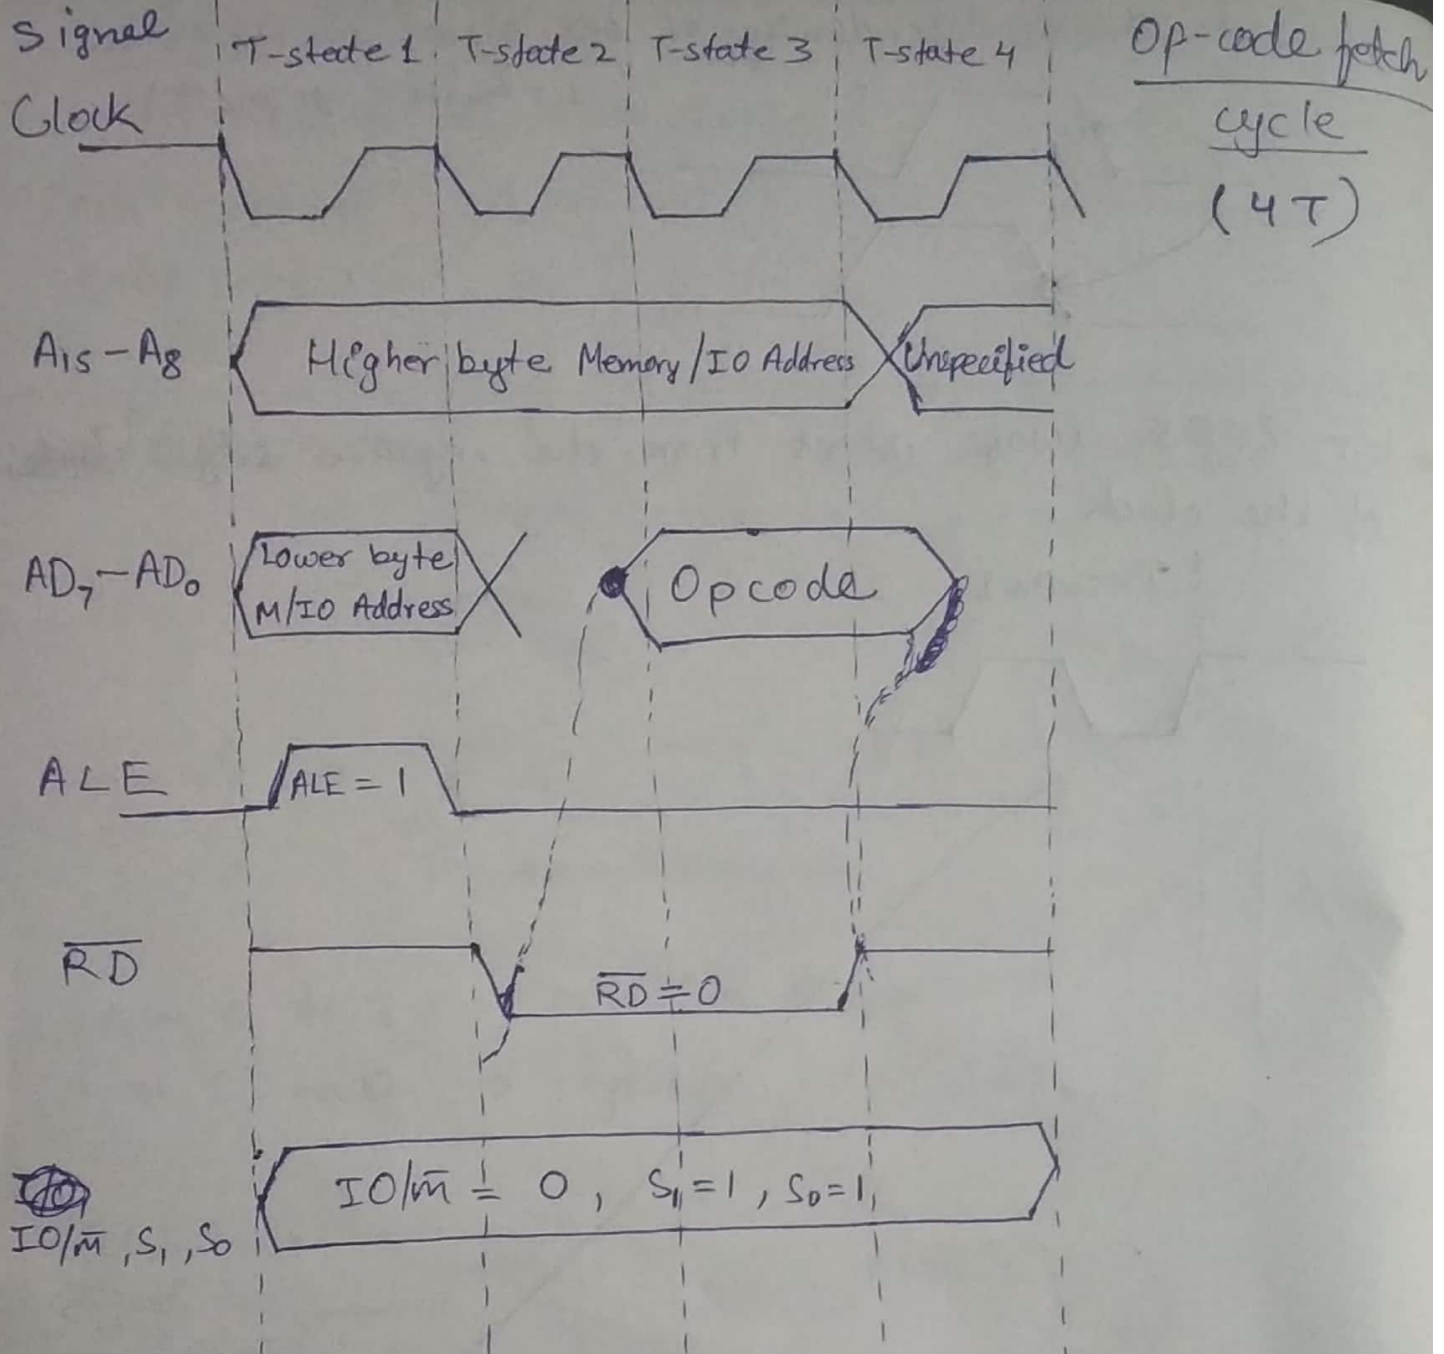 Signal
T-state 1 T-state 2 T-state 3 T-state 4
Op-code fetch
cycle
(4T)
Clock
A15-A8
Higher byte Memory/IO Address
Unspecified
AD7-AD0
Lower byte
M/IO Address
Opcode
ALE
ALE = 1
R̅D̅
R̅D̅ = 0
IO/M̅ = 0, S1=1, S0=1
IO/M̅, S1, S0